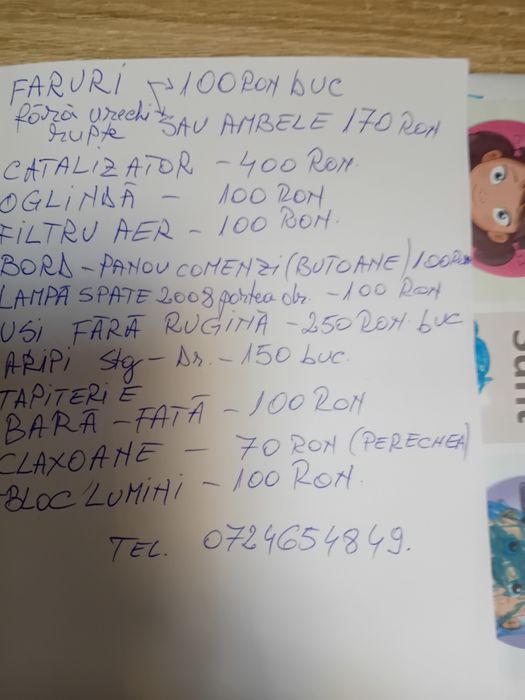 FARURI → 100 RON buc
fără urechi → SAU AMBELE 170 RON
rupte
CATALIZATOR - 400 RON.
OGLINDĂ - 100 RON
FILTRU AER - 100 RON.
BORD - PANOU COMENZI (BUTOANE) 100 RON
LAMPĂ SPATE 2008 partea dr. - 100 RON
USI FĂRĂ RUGINĂ - 250 RON. buc
ARIPI Stg - Dr. - 150 buc.
TAPITERIE
BARĂ - FATĂ - 100 RON
CLAXOANE - 70 RON (PERECHEA)
BLOC LUMINI - 100 RON.
TEL. 0724654849.